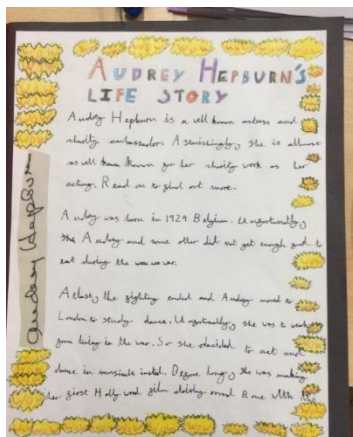 AUDREY HEPBURN'S
LIFE STORY
Audrey Hepburn is a well known actress and
charity ambassador. Astonishingly, she is allmost
as well known for her charity work as her
acting. Read on to find out more.
Audrey was born in 1929 Belgium. Unfortunatly,
Audrey and some other did not get enough food to
eat during the war.
Atlast, the fighting ended and Audrey moved to
London to study dance. she was to weak
from living in the war. So she decided to act and
dance in insted. Before long, she was making
her first Holly wood film Rome with
Audrey Hepburn